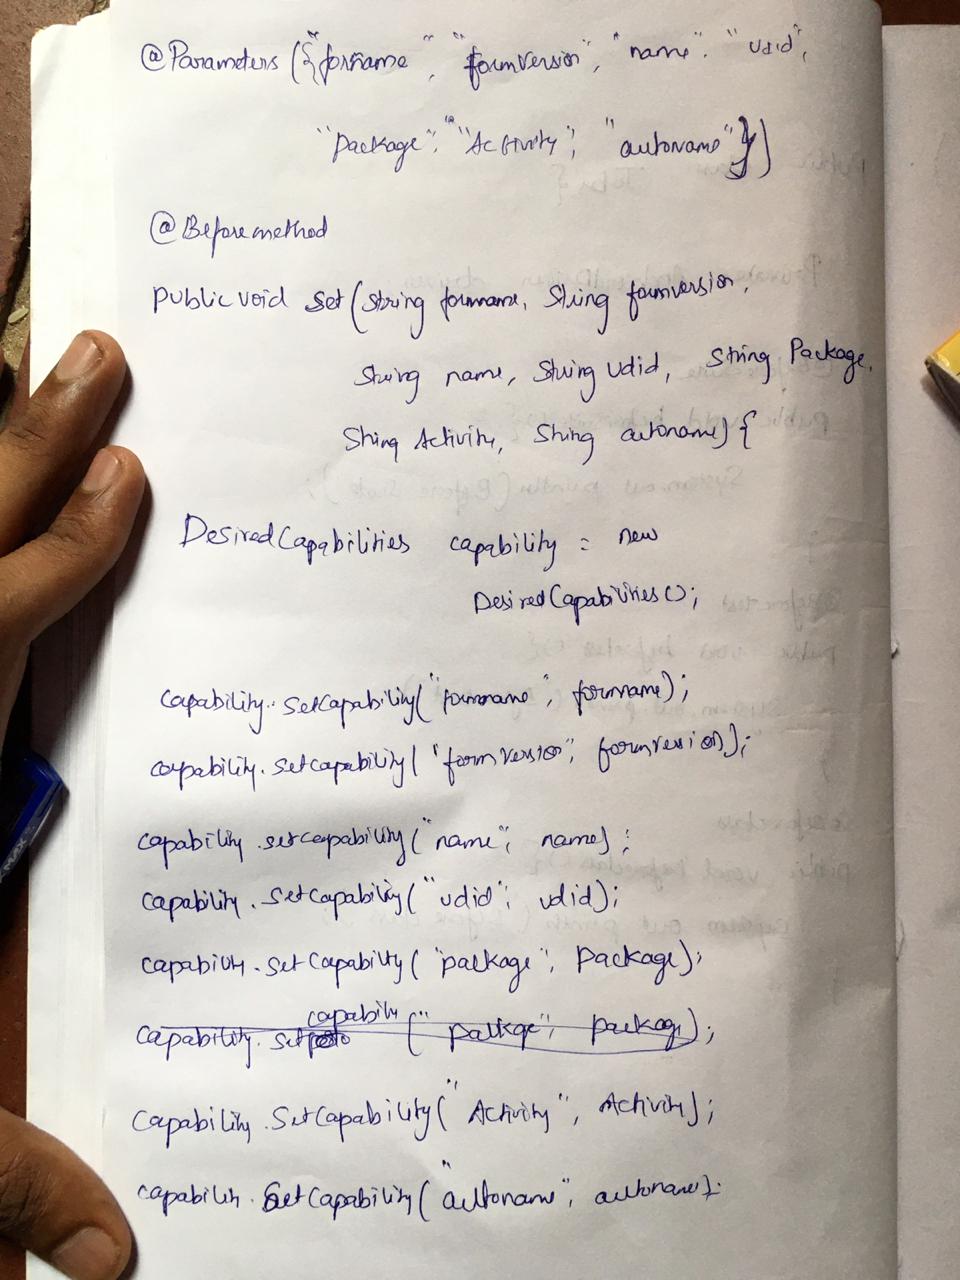 @Parameters ({"formname", "formversion", "name", "udid",
"package", "Activity", "autoname"})
@Beforemethod
public void set(String formname, String formversion,
String name, String udid, String Package,
String Activity, String autoname) {
DesiredCapabilities capability = new
DesiredCapabilities();
capability.setCapability("formname", formname);
capability.setcapability("formversion", formversion);
capability.setcapability("name", name);
capability.setCapability("udid", udid);
capability.setCapability("package", Package);
capability.set capability ("package", package);
Capability.SetCapability("Activity", Activity);
capability.SetCapability("autoname", autoname);